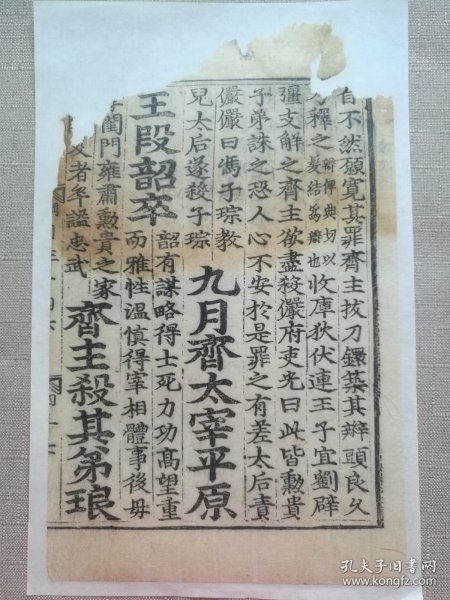 自不然願寬其罪齊主拔刀鐶築其辮頭良久
釋之
辮俾典切以
髮結為辮也
收庫狄伏連王子宜劉辟
彊支解之齊主欲盡殺儼府吏光曰此皆勳貴
子弟誅之恐人心不安於是罪之有差太后責
儼儼曰馮子琮教
兒太后遂殺子琮
九月齊太宰平原
王段韶卒
韶有謀略得士死力功髙望重
而雅性溫慎得宰相體事後母
孝閨門雍肅勳貴之家
及者卒謚忠武
齊主殺其弟琅
孔夫子旧书网
www.kongfz.com